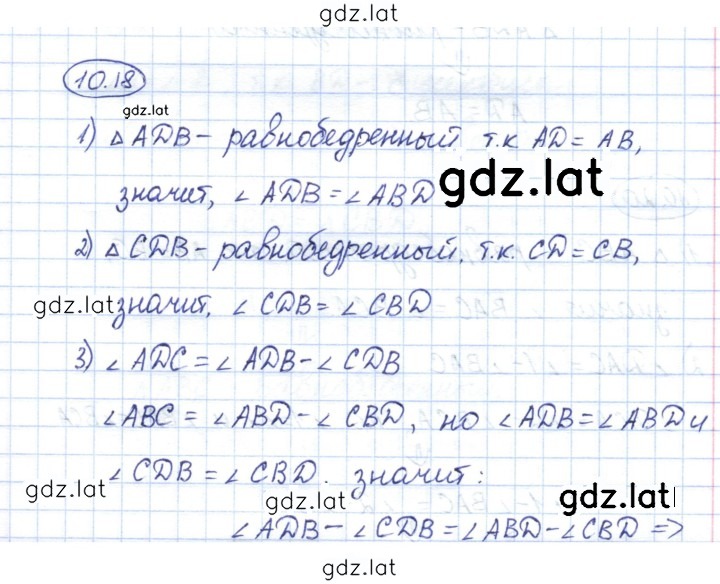 gdz.lat
10.18
gdz.lat
1) △ ADB – равнобедренный, т.к AD = AB,
значит, ∠ ADB = ∠ ABD
gdz.lat
2) △ CDB – равнобедренный, т.к. CD = CB,
gdz.lat
значит, ∠ CDB = ∠ CBD
3) ∠ ADC = ∠ ADB – ∠ CDB
∠ABC = ∠ABD – ∠ CBD, но ∠ADB = ∠ABD и
∠ CDB = ∠ CBD. значит:
gdz.lat
gdz.lat
gdz.lat
∠ADB – ∠CDB = ∠ABD – ∠CBD =>
gdz.lat